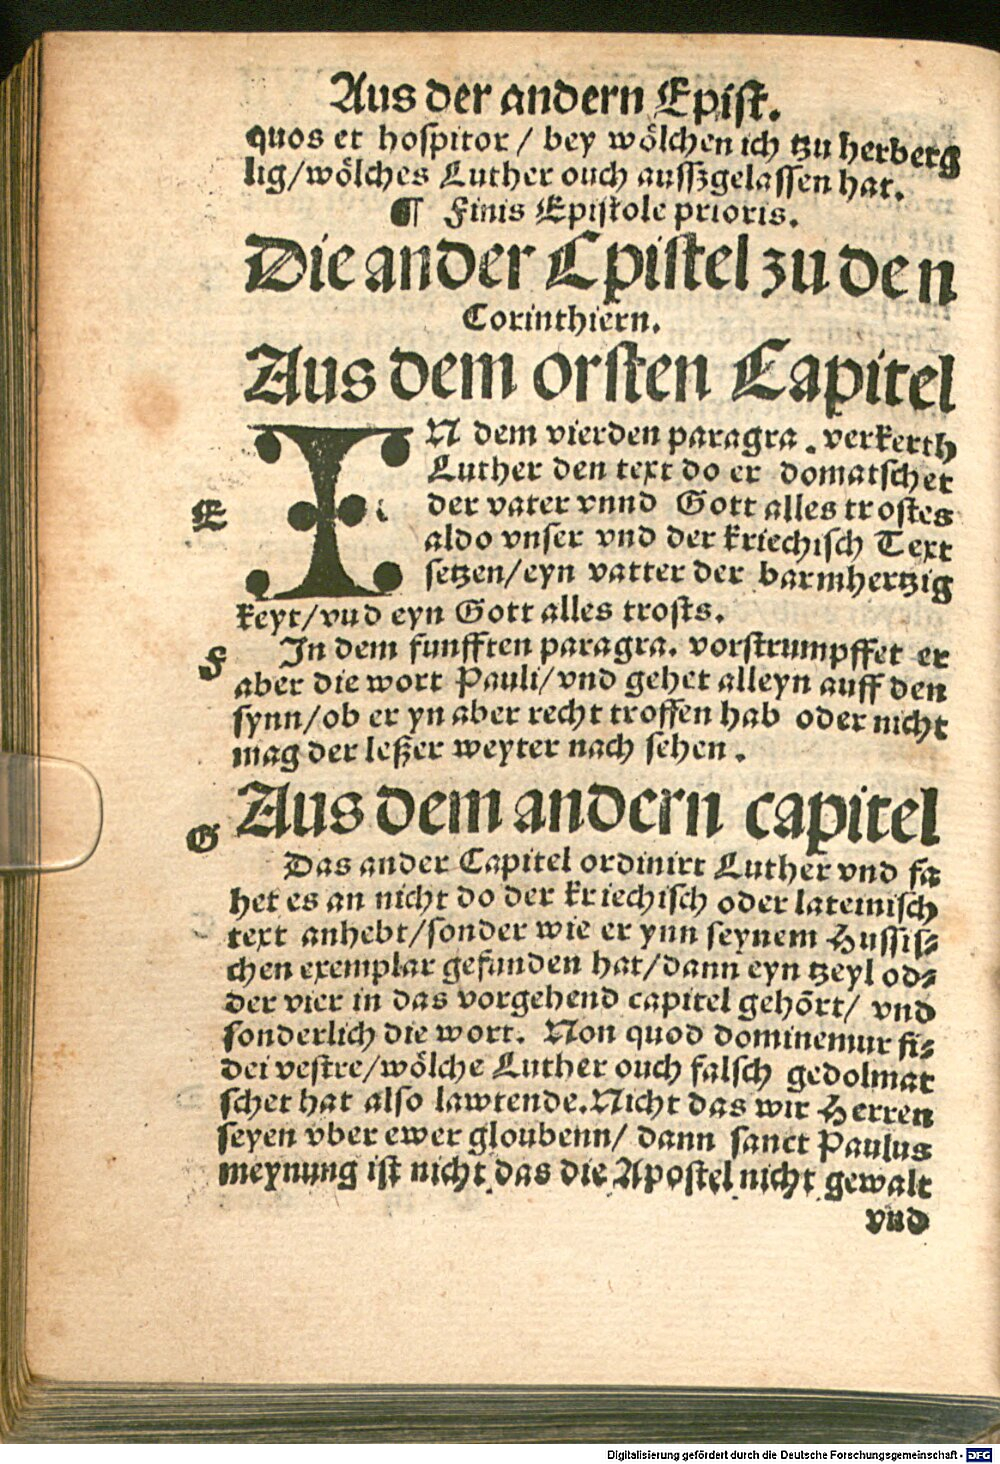 Aus der andern Epist.
quos et hospitor / bey wölchen ich tzu herberg
lig/wölches Luther ouch ausszgelassen hat.
¶ Finis Epistole prioris.
Die ander Epistel zu den
Corinthiern.
Aus dem orsten Capitel
IN dem vierden paragra. verkerth
Luther den text do er domatschet
E der vater vnnd Gott alles trostes
aldo vnser vnd der kriechisch Text
setzen/eyn vatter der barmhertzig
keyt/vud eyn Gott alles trosts.
F In dem funfften paragra. vorstrumpffet er
aber die wort Pauli/vnd gehet alleyn auff den
synn/ob er yn aber recht troffen hab oder nicht
mag der leßer weyter nach sehen.
Aus dem andern capitel
G Das ander Capitel ordinirt Luther vnd fa
het es an nicht do der kriechisch oder lateinisch
text anhebt/sonder wie er ynn seynem Hussis⸗
chen exemplar gefunden hat/dann eyn tzeyl od⸗
der vier in das vorgehend capitel gehört/ vnd
sonderlich die wort. Non quod dominemur fi⸗
dei vestre/wölche Luther ouch falsch gedolmat
schet hat also lawtende.Nicht das wir Herren
seyen vber ewer gloubenn/ dann sanct Paulus
meynung ist nicht das die Apostel nicht gewalt
vnd
Digitalisierung gefördert durch die Deutsche Forschungsgemeinschaft - DFG